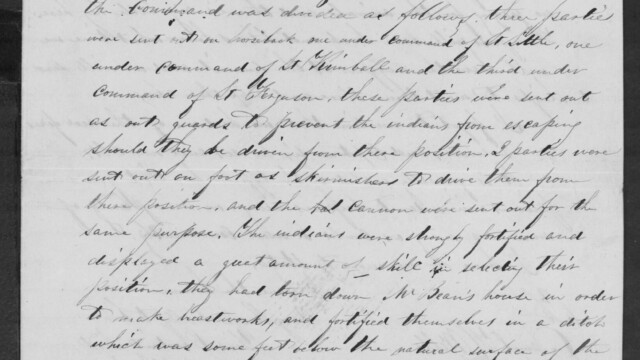 the command was divided as follows, three parties
were sent out on horseback one under command of Lt Little, one
under command of Lt Kimball and the third under
command of Lt Ferguson, these parties were sent out
as out guards to prevent the indians from escaping
should they be driven from there position, 2 parties were
sent out on foot as skirmishers to drive them from
there position, and the cannon were sent out for the
same purpose. The indians were strongly fortified and
displayed a great amount of skill in selecting their
position, they had torn down Mc Bean's house in order
to make breastworks, and fortified themselves in a ditch
which was some feet below the natural surface of the